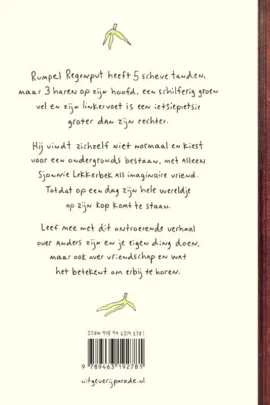 Rumpel Regenput heeft 5 scheve tanden,
maar 3 haren op zijn hoofd, een schilferig groen
vel en zijn linkervoet is een ietsiepietsie
groter dan zijn rechter.
Hij vindt zichzelf niet normaal en kiest
voor een ondergronds bestaan, met alleen
Sjonnie Lekkerbek als imaginaire vriend.
Totdat op een dag zijn hele wereldje
op zijn kop komt te staan.
Leef mee met dit ontroerende verhaal
over anders zijn en je eigen ding doen,
maar ook over vriendschap en wat
het betekent om erbij te horen.
ISBN 978 94 6319 278 1
9 789463 192781
uitgeverijparade.nl